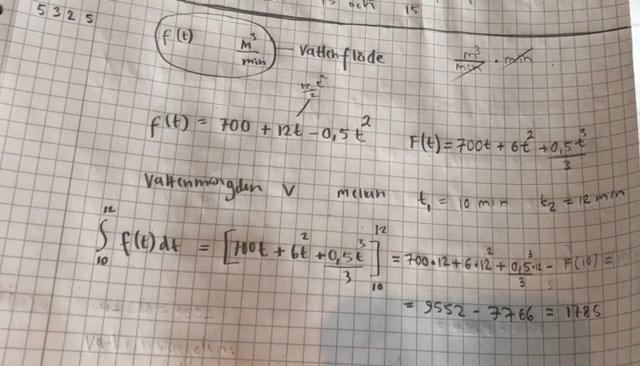 och 15
5 3 2 5
f(t) m³/min — vattenflöde m³/min · min
12t²/2
f(t) = 700 + 12t - 0,5t²
F(t) = 700t + 6t² + 0,5t³/3
Vattenmängden V mellan t₁ = 10 min t₂ = 12 min
∫₁₀¹² f(t)dt = [700t + 6t² + 0,5t³/3]₁₀¹² = 700·12 + 6·12² + 0,5·12³/3 - F(10) =
= 9552 - 7766 = 1785